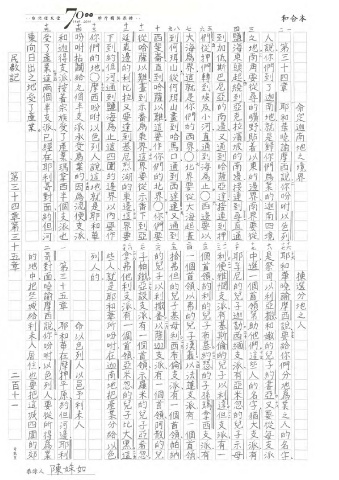 和合本
命定迦南地之境界
第三十四章 耶和華曉諭摩西說你吩咐以色列
人說你們到了迦南地就是歸你們為業的迦南四境
之地南角要從尋的曠野貼着以東的邊界南界要從
鹽海東頭起繞到亞克拉濱坡的南邊接連到尋直通
到加低斯巴尼亞的南邊又通到哈薩亞達接連到押
們從押們轉到埃及小河直通到海為止○西邊要以
大海為界這就是你們的西界○北界要從大海起畫
到何珥山從何珥山畫到哈馬口通到西達達又通到
西斐崙直到哈薩以難這要作你們的北界○你們要
從哈薩以難畫到示番為東界這界要從示番下到亞
延東邊的利比拉又要達到基尼烈湖的東邊這界要
下到約但河通到鹽海為止這四圍的邊界以內要作
你們的地○摩西吩咐以色列人說這地就是耶和華
吩咐拈鬮給九個半支派承受為業的因為流便支派
和迦得支派按着宗族受了產業瑪拿西半個支派也
受了產業這兩個半支派已經在耶利哥對面約但河
東向日出之地受了產業
揀選分地之人
耶和華曉諭摩西說要給你們分地為業之人的名字
是祭司以利亞撒和嫩的兒子約書亞又要從每支派
中選一個首領幫助他們這些人的名字猶大支派有
耶孚尼的兒子迦勒西緬支派有亞米忽的兒子示母
利便雅憫支派有基斯倫的兒子以利達但支派有一
個首領約利的兒子布基約瑟的子孫瑪拿西支派有
一個首領以弗的兒子漢聶以法蓮支派有一個首領
拾弗但的兒子基母利西布倫支派有一個首領帕納
的兒子以利撒番以薩迦支派有一個首領阿散的兒
子帕鐵亞設支派有一個首領示羅米的兒子亞希忽
拿弗他利支派有一個首領亞米忽的兒子比大黑這
些人就是耶和華所吩咐在迦南地把產業分給以色
列人的
命以色列人以邑予利未人
第三十五章 耶和華在摩押平原約但河邊耶利
哥對面曉諭摩西說你吩咐以色列人要從所得為業
的地中把些城給利未人居住也要把這城四圍的郊
民數記
第三十四章第三十五章
二百十一
陳妹如